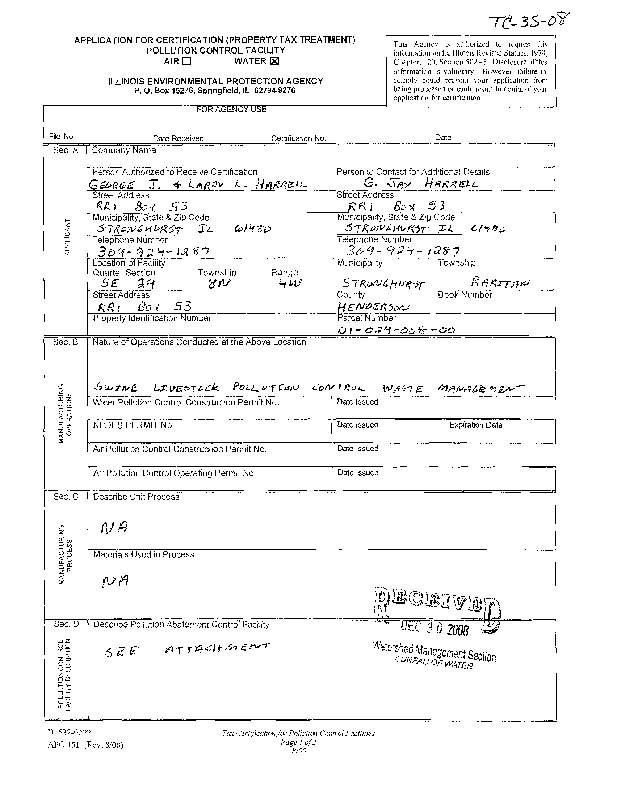 TC-35-08
APPLICATION FOR CERTIFICATION (PROPERTY TAX TREATMENT)
POLLUTION CONTROL FACILITY
AIR ☐ WATER ☒
ILLINOIS ENVIRONMENTAL PROTECTION AGENCY
P. O. Box 19276, Springfield, IL 62794-9276
This Agency is authorized to request this
information under Illinois Revised Statutes, 1979,
Chapter 120, Section 502a-5. Disclosure of this
information is voluntary. However, failure to
comply could prevent your application from
being processed or could result in denial of your
application for certification.
FOR AGENCY USE
File No. Date Received Certification No. Date
Sec. A Company Name
APPLICANT
Person Authorized to Receive Certification Person to Contact for Additional Details
GEORGE J. & LARRY L. HARRELL G. JAY HARRELL
Street Address Street Address
RR1 BOX 53 RR1 BOX 53
Municipality, State & Zip Code Municipality, State & Zip Code
STRONGHURST IL 61480 STRONGHURST IL 61480
Telephone Number Telephone Number
309-924-1287 309-924-1287
Location of Facility Municipality Township
Quarter Section Township Range
SE 29 8N 4W STRONGHURST RARITAN
Street Address County Book Number
RR1 BOX 53 HENDERSON
Property Identification Number Parcel Number
01-029-008-00
Sec. B Nature of Operations Conducted at the Above Location
MANUFACTURING OPERATIONS
SWINE LIVESTOCK POLLUTION CONTROL WASTE MANAGEMENT
Water Pollution Control Construction Permit No. Date Issued
NPDES PERMIT No. Date Issued Expiration Date
Air Pollution Control Construction Permit No. Date Issued
Air Pollution Control Operating Permit No. Date Issued
Sec. C Describe Unit Process
MANUFACTURING PROCESS
NA
Materials Used in Process
NA
Sec. D Describe Pollution Abatement Control Facility
POLLUTION CONTROL FACILITY DESCRIPTION
SEE ATTACHMENT
RECEIVED
DEC 30 2008
Watershed Management Section
BUREAU OF WATER
Tax Certification for Pollution Control Facilities
APC 151 (Rev. 8/00) Page 1 of 2